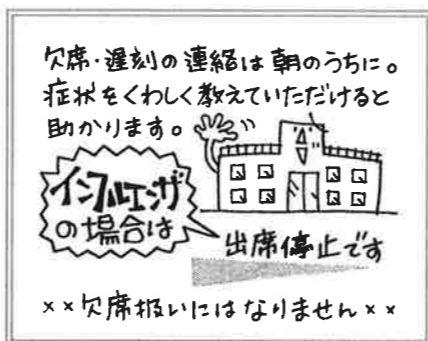 欠席・遅刻の連絡は朝のうちに。
症状をくわしく教えていただけると
助かります。
インフルエンザ
の場合は
出席停止です
××欠席扱いにはなりません××